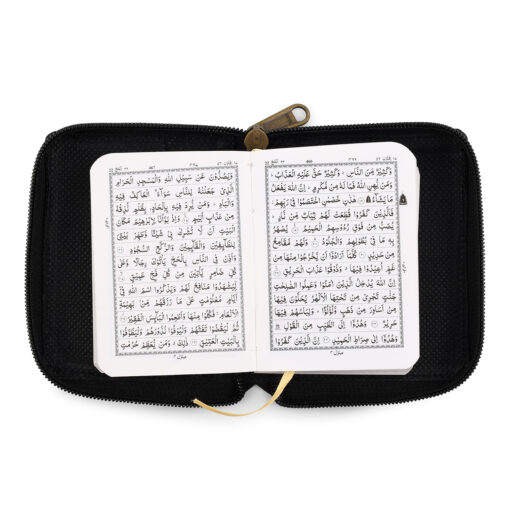 وَكَثِيْرٌ مِّنَ النَّاسِ ؕ وَكَثِيْرٌ حَقَّ عَلَيْهِ الْعَذَابُ ؕ
وَمَنْ يُّهِنِ اللّٰهُ فَمَا لَهٗ مِنْ مُّكْرِمٍ ؕ اِنَّ اللّٰهَ يَفْعَلُ
مَا يَشَآءُ هٰذٰنِ خَصْمٰنِ اخْتَصَمُوْا فِيْ رَبِّهِمْ
فَالَّذِيْنَ كَفَرُوْا قُطِّعَتْ لَهُمْ ثِيَابٌ مِّنْ نَّارٍ
يُصَبُّ مِنْ فَوْقِ رُءُوْسِهِمُ الْحَمِيْمُ يُصْهَرُ
بِهٖ مَا فِيْ بُطُوْنِهِمْ وَالْجُلُوْدُ وَلَهُمْ مَّقَامِعُ
مِنْ حَدِيْدٍ كُلَّمَآ اَرَادُوْٓا اَنْ يَّخْرُجُوْا مِنْهَا مِنْ
غَمٍّ اُعِيْدُوْا فِيْهَا وَذُوْقُوْا عَذَابَ الْحَرِيْقِ
اِنَّ اللّٰهَ يُدْخِلُ الَّذِيْنَ اٰمَنُوْا وَعَمِلُوا الصّٰلِحٰتِ
جَنّٰتٍ تَجْرِيْ مِنْ تَحْتِهَا الْاَنْهٰرُ يُحَلَّوْنَ فِيْهَا
مِنْ اَسَاوِرَ مِنْ ذَهَبٍ وَّلُؤْلُؤًا ؕ وَلِبَاسُهُمْ فِيْهَا
حَرِيْرٌ وَهُدُوْٓا اِلَى الطَّيِّبِ مِنَ الْقَوْلِ
وَهُدُوْٓا اِلٰى صِرَاطِ الْحَمِيْدِ اِنَّ الَّذِيْنَ كَفَرُوْا
وَيَصُدُّوْنَ عَنْ سَبِيْلِ اللّٰهِ وَالْمَسْجِدِ الْحَرَامِ
الَّذِيْ جَعَلْنٰهُ لِلنَّاسِ سَوَآءً الْعَاكِفُ فِيْهِ
وَالْبَادِ ؕ وَمَنْ يُّرِدْ فِيْهِ بِاِلْحَادٍ بِظُلْمٍ نُّذِقْهُ
مِنْ عَذَابٍ اَلِيْمٍ وَاِذْ بَوَّاْنَا لِاِبْرٰهِيْمَ مَكَانَ
الْبَيْتِ اَنْ لَّا تُشْرِكْ بِيْ شَيْئًا وَّطَهِّرْ بَيْتِيَ
لِلطَّآئِفِيْنَ وَالْقَآئِمِيْنَ وَالرُّكَّعِ السُّجُوْدِ
وَاَذِّنْ فِي النَّاسِ بِالْحَجِّ يَاْتُوْكَ رِجَالًا وَّعَلٰى
كُلِّ ضَامِرٍ يَّاْتِيْنَ مِنْ كُلِّ فَجٍّ عَمِيْقٍ
لِّيَشْهَدُوْا مَنَافِعَ لَهُمْ وَيَذْكُرُوا اسْمَ اللّٰهِ فِيْٓ
اَيَّامٍ مَّعْلُوْمٰتٍ عَلٰى مَا رَزَقَهُمْ مِّنْ بَهِيْمَةِ
الْاَنْعَامِ فَكُلُوْا مِنْهَا وَاَطْعِمُوا الْبَآئِسَ الْفَقِيْرَ
ثُمَّ لْيَقْضُوْا تَفَثَهُمْ وَلْيُوْفُوْا نُذُوْرَهُمْ وَلْيَطَّوَّفُوْا
بِالْبَيْتِ الْعَتِيْقِ ذٰلِكَ وَمَنْ يُّعَظِّمْ حُرُمٰتِ